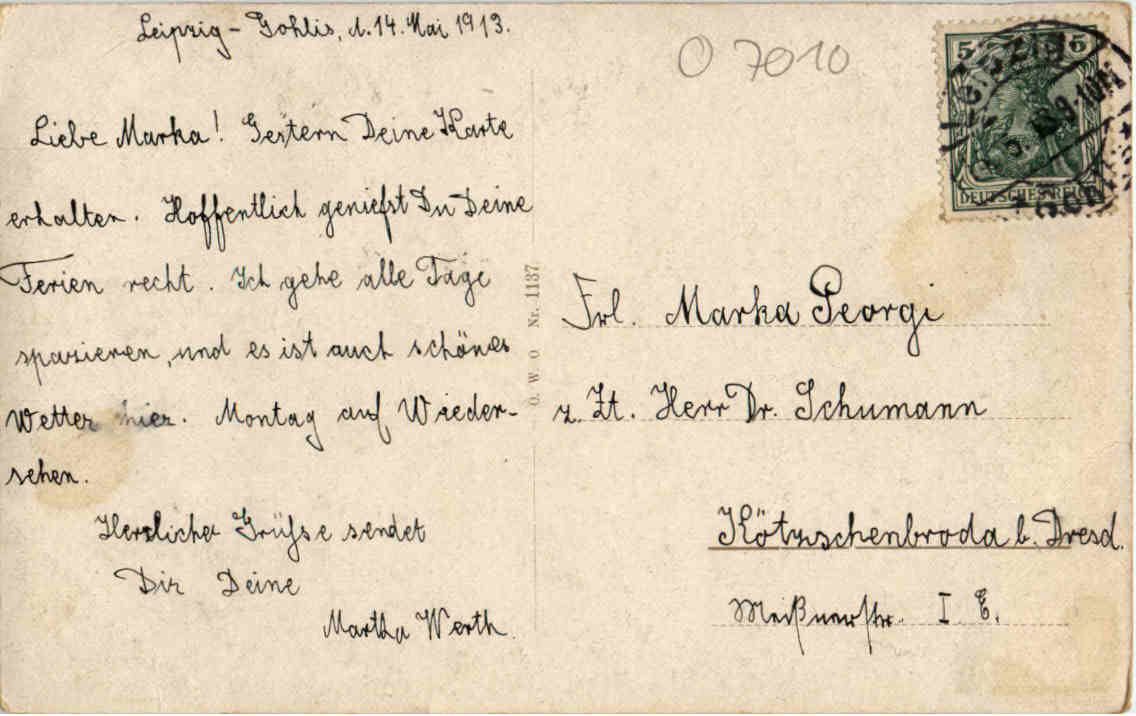 Leipzig-Gohlis, d. 14. Mai 1913.
O 7010
Liebe Marka! Gestern Deine Karte
erhalten. Hoffentlich genießt Du Deine
Ferien recht. Ich gehe alle Tage
spazieren, und es ist auch schönes
Wetter hier. Montag auf Wieder-
sehen.
Herzliche Grüsse sendet
Dir Deine
Martha Werth.
O. W. O Nr. 1137
5 5
DEUTSCHES REICH
LEIPZIG
9-10N
GOHLIS
Frl. Marka Georgi
z. Zt. Herr Dr. Schumann
Kötzschenbroda b. Dresd.
Meißnerstr. I E.